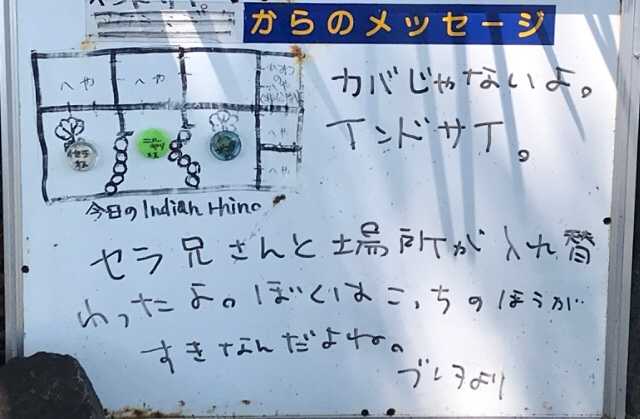 からのメッセージ
へや
へや
へや
へや
カバじゃないよ。
インドサイ。
今日のIndian rhino
セラ兄さんと場所が入れ替
わったよ。ぼくはこっちのほうが
すきなんだよね。
ブレヲより